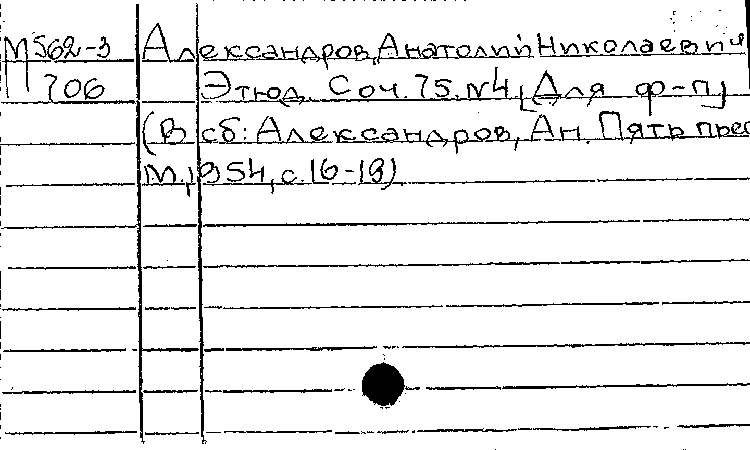 М562-3 Александров, Анатолий Николаевич
П706 Этюд. Соч. 75. №4, [Для ф-п]
(В сб: Александров, Ан. Пять прес
М., 1954, с. 16-18)